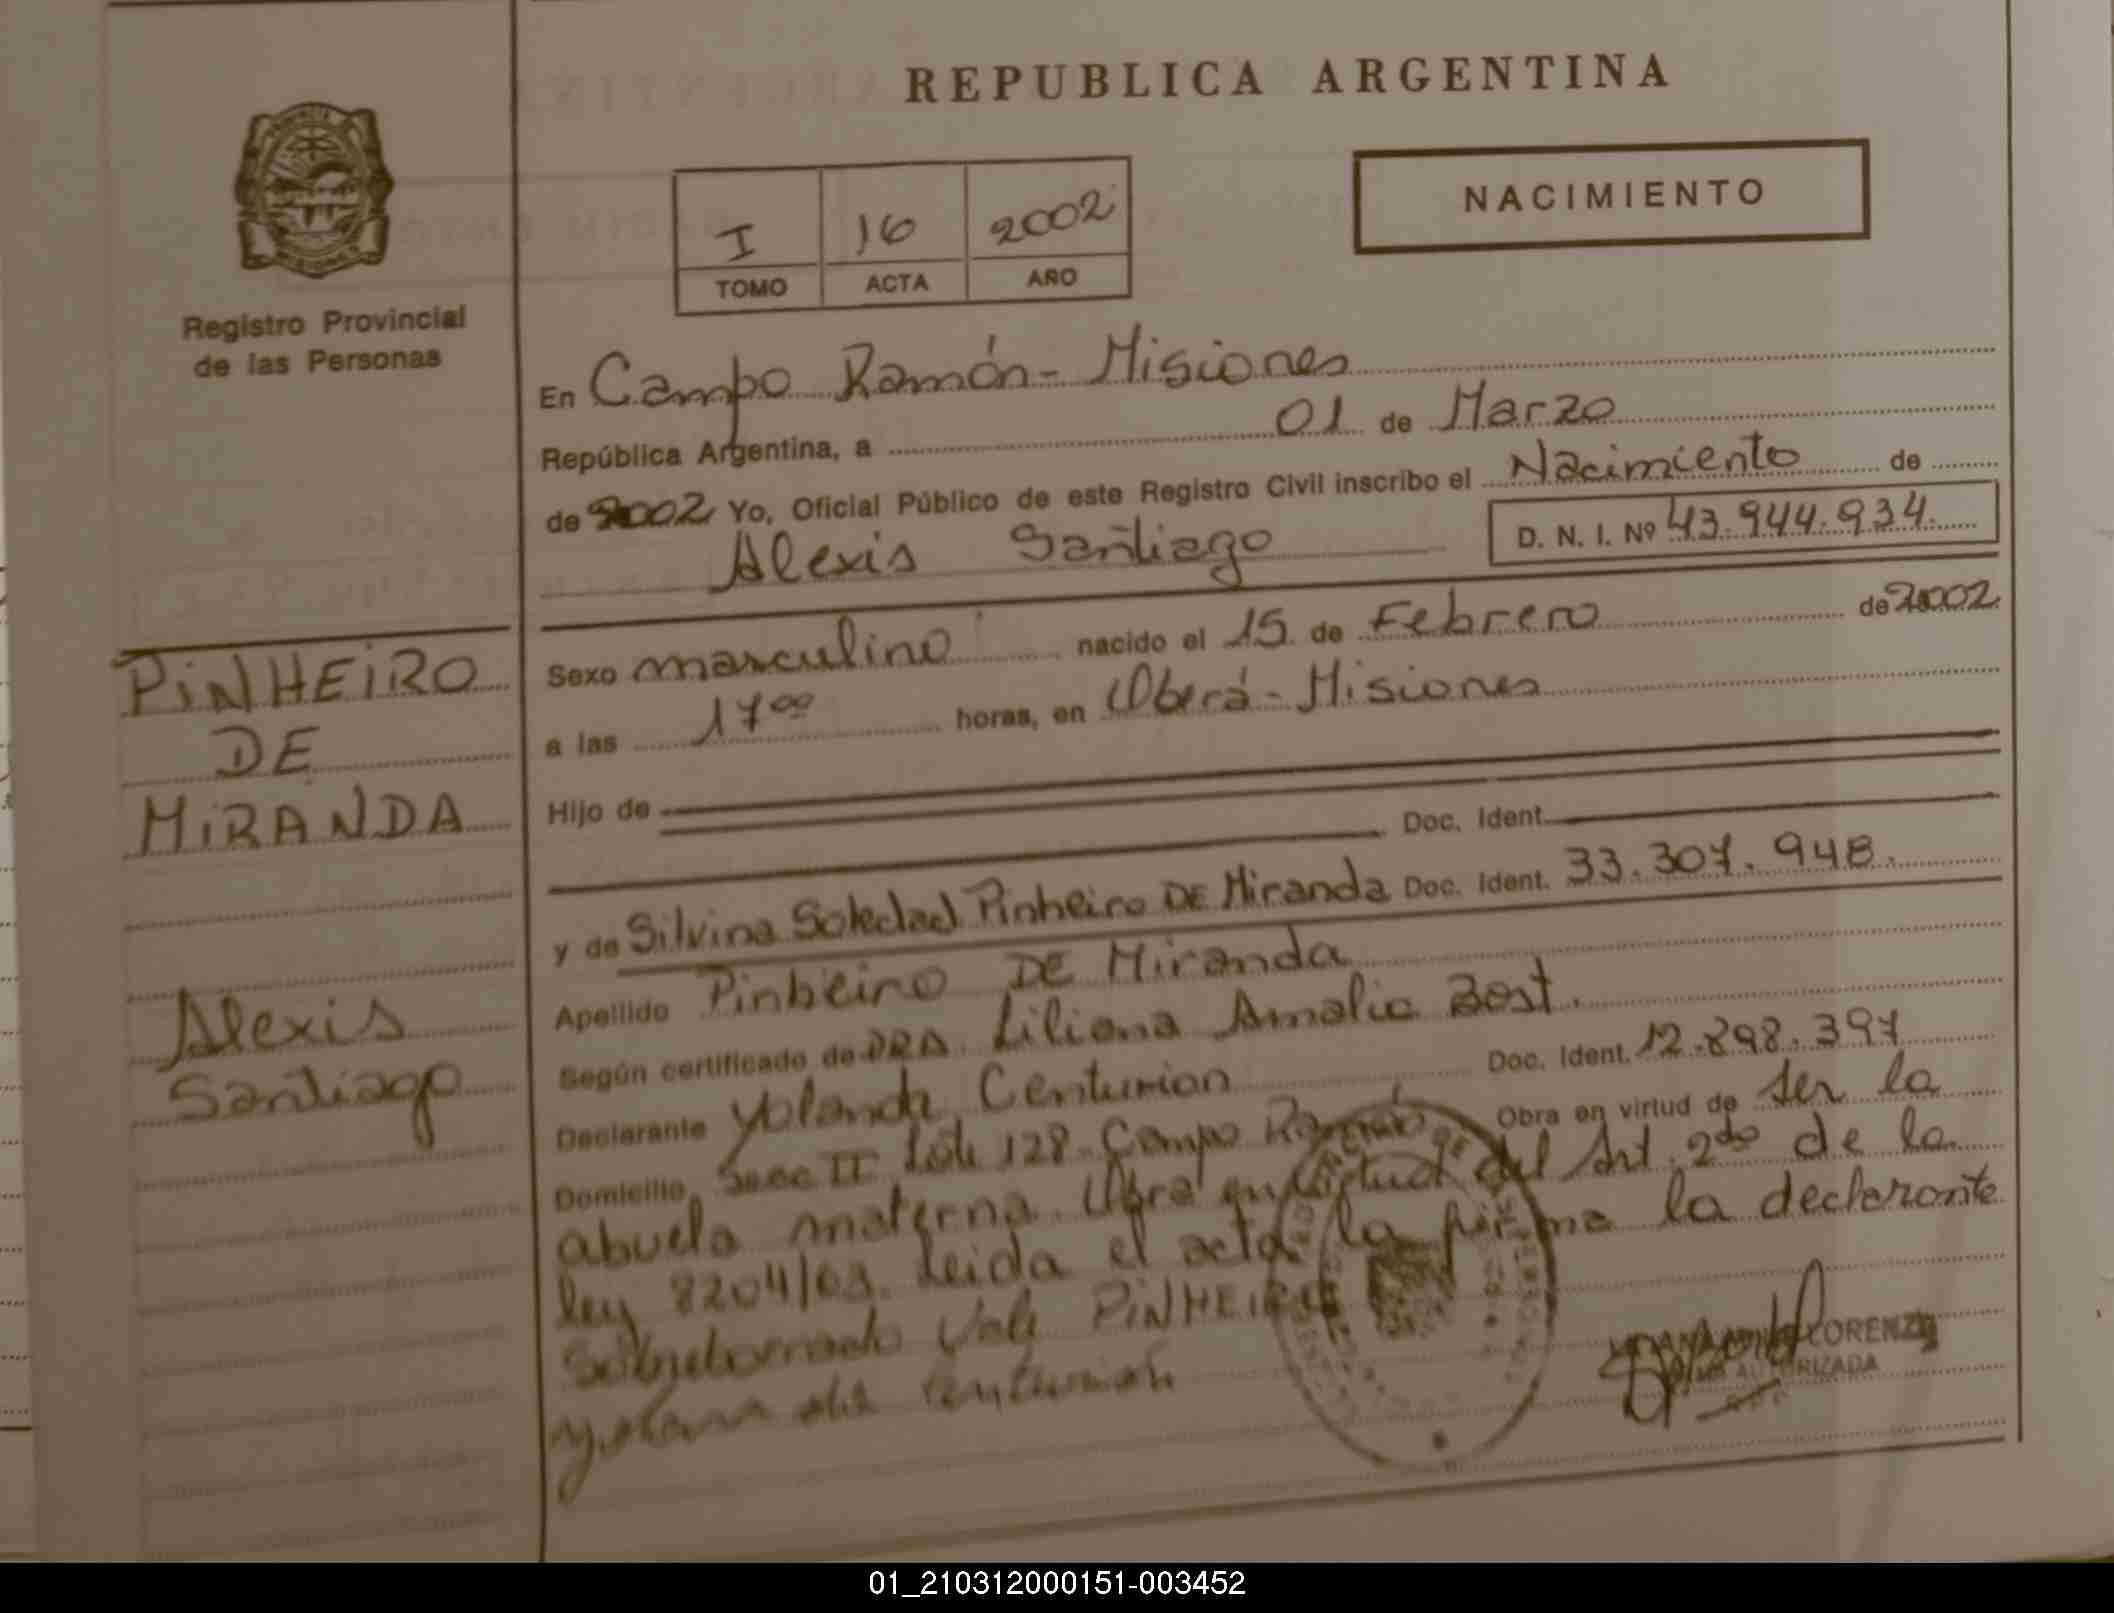 REPUBLICA ARGENTINA
NACIMIENTO
I 16 2002
TOMO ACTA AÑO
Registro Provincial
de las Personas
En Campo Ramón - Misiones
República Argentina, a 01 de Marzo
de 2002 Yo, Oficial Público de este Registro Civil inscribo el Nacimiento de
Alexis Santiago D. N. I. Nº 43.944.934.
PiNHEiRO
DE
MiRANDA
Alexis
Santiago
Sexo masculino nacido el 15 de Febrero de 2002
a las 17 00 horas, en Oberá - Misiones
Hijo de
Doc. Ident.
y de Silvina Soledad Pinheiro DE Miranda Doc. Ident. 33.307.948.
Apellido Pinheiro DE Miranda
Según certificado de DRA. Liliana Amalia Bost.
Declarante Yolanda Centurion Doc. Ident. 12.898.397
Domicilio Secc II Lote 128 - Campo Ramón Obra en virtud de ser la
abuela materna. Obra en virtud del Art. 2do de la
ley 8204/63. Leida el acta la firma la declarante
Sobreborrado Vale PiNHEIRO
Yolanda Centurion
LORENZ
AUTORIZADA
01_210312000151-003452